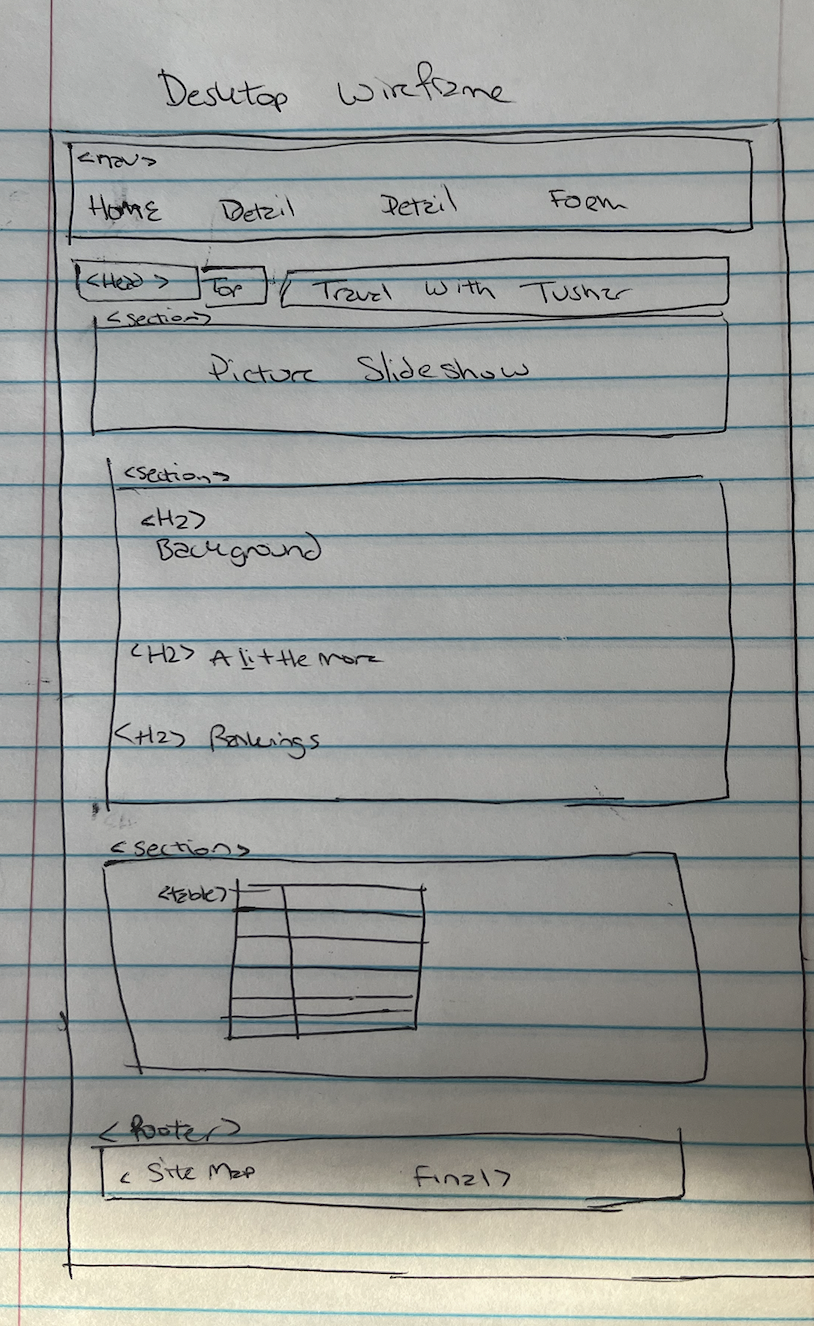 Desktop Wireframe
<nav>
Home Detail Detail Form
<Head> Top Travel With Tushar
<section>
Picture Slideshow
<section>
<H2>
Background
<H2> A little more
<H2> Rankings
<section>
<table>
<Footer>
< Site Map Final>